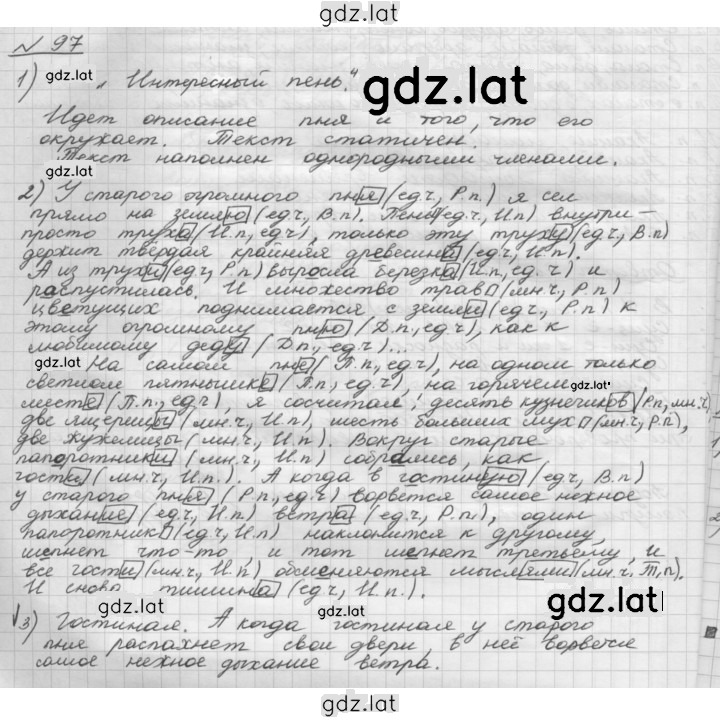 gdz.lat
№ 97
1) gdz.lat „Интересный пень." gdz.lat
Идет описание пня и того, что его
окружает. Текст статичен.
gdz.lat
Текст наполнен однородными членами.
2) У старого огромного пня (ед.ч, Р.п.) я сел
прямо на землю (ед.ч, В.п). Пень (ед.ч, И.п) внутри –
просто труха (И.п, ед.ч), только эту труху (ед.ч, В.п)
держит твердая крайняя древесина (ед.ч, И.п).
А из трухи (ед.ч, Р.п) выросла березка (И.п, ед.ч) и
распустилась. И множество трав (мн.ч, Р.п)
цветущих поднимается с земли (ед.ч, Р.п) к
этому огромному пню (Д.п, ед.ч), как к
любимому деду (Д.п., ед.ч)...
gdz.lat На самом пне (П.п, ед.ч), на одном только
светлом пятнышке (П.п, ед.ч), на горячем gdz.lat
месте (П.п, ед.ч), я сосчитал: десять кузнечиков (Р.п, мн.ч),
две ящерицы (мн.ч, И.п), шесть больших мух (мн.ч, Р.п),
две жужелицы (мн.ч, И.п). Вокруг старые
папоротники (мн.ч, И.п) собрались, как
гости (мн.ч, И.п.). А когда в гостиную (ед.ч, В.п)
у старого пня (Р.п, ед.ч) ворвется самое нежное
дыхание (ед.ч, И.п) ветра (ед.ч, Р.п), один
папоротник (ед.ч, И.п) наклонится к другому,
шепнет что-то, и тот шепнет третьему, и
все гости (мн.ч, И.п) обменяются мыслями (мн.ч, Т.п).
И снова тишина (ед.ч, И.п).
gdz.lat gdz.lat gdz.lat
3) Гостиная. А когда гостиная у старого
пня распахнет свои двери, в неё ворвется
самое нежное дыхание ветра.
gdz.lat